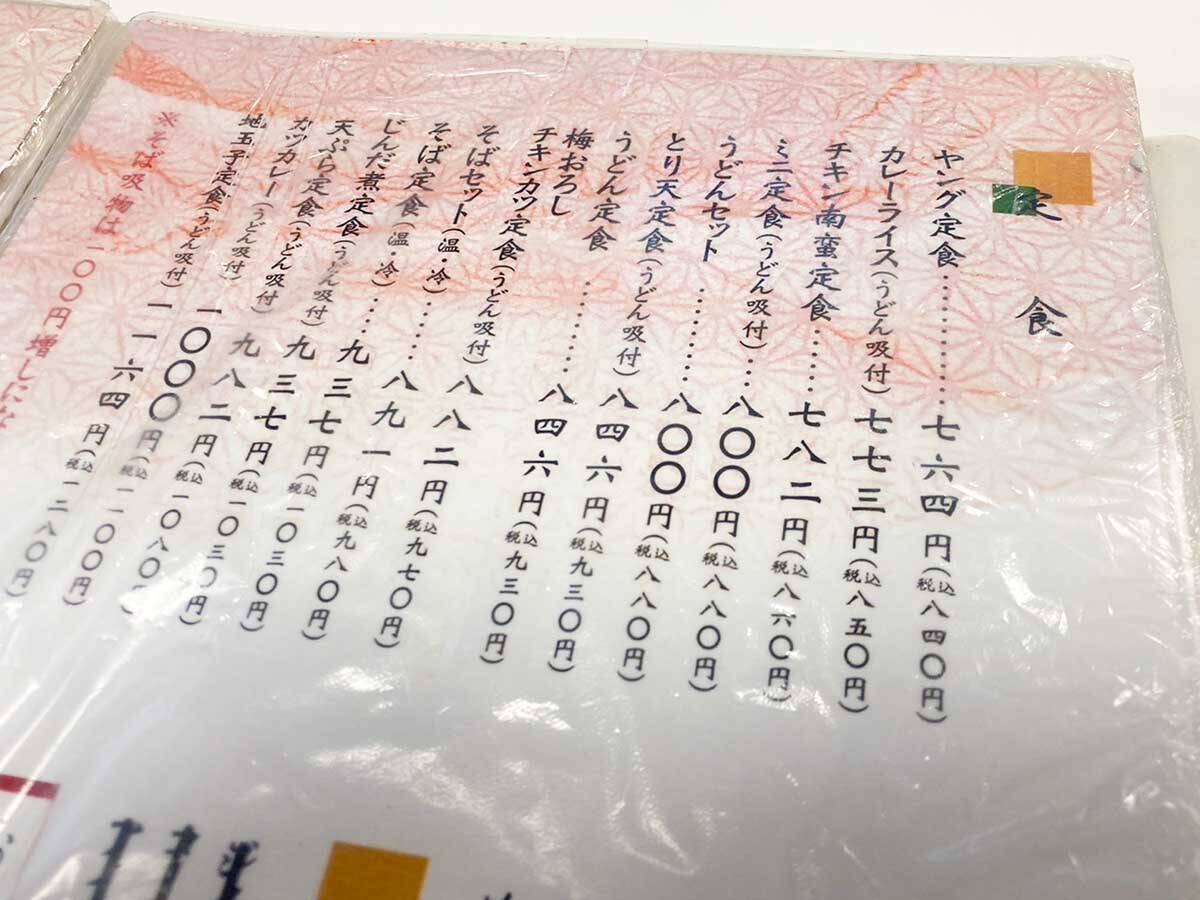 定食
ヤング定食…………七六四円(税込八四〇円)
カレーライス(うどん吸付)七七三円(税込八五〇円)
チキン南蛮定食……七八二円(税込八六〇円)
ミニ定食(うどん吸付)…八〇〇円(税込八八〇円)
うどんセット………八〇〇円(税込八八〇円)
とり天定食(うどん吸付)八四六円(税込九三〇円)
うどん定食…………八四六円(税込九三〇円)
梅おろし
チキンカツ定食(うどん吸付)八八二円(税込九七〇円)
そばセット(温・冷)……八九一円(税込九八〇円)
そば定食(温・冷)……九三七円(税込一〇三〇円)
じんだ煮定食(うどん吸付)九三七円(税込一〇三〇円)
天ぷら定食(うどん吸付)九八二円(税込一〇八〇円)
カツカレー(うどん吸付)一〇〇〇円(税込一一〇〇円)
地玉子定食(うどん吸付)一一六四円(税込一二八〇円)
※そば吸物は一〇〇円増しにな